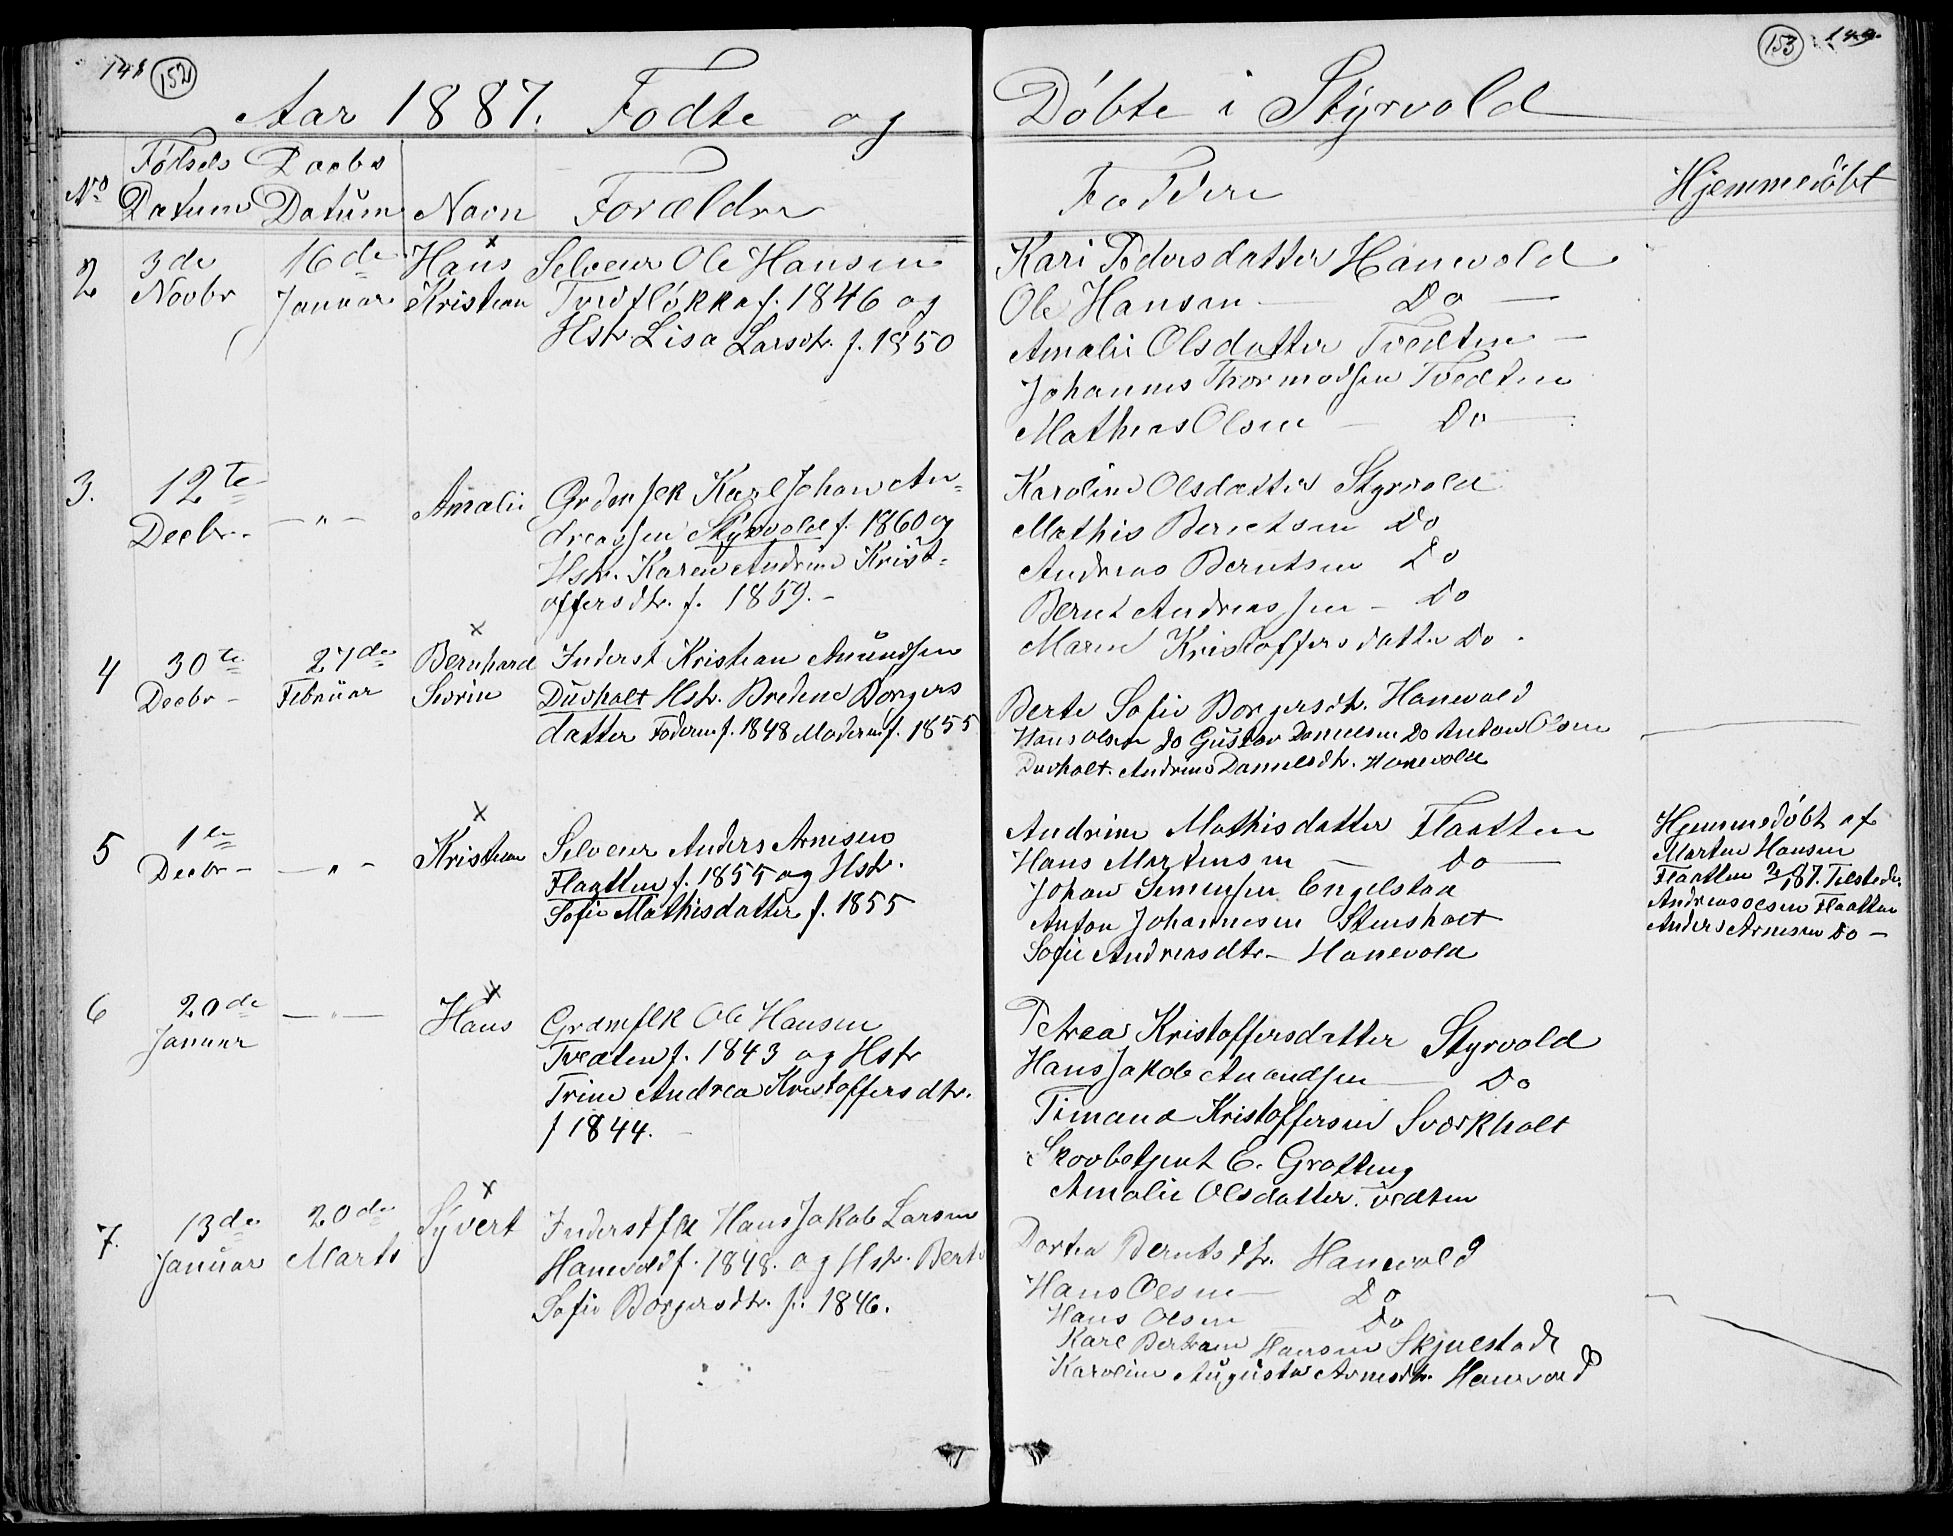 148 152
Aar 1887. Fødte og
No Fødsels Datum Daabs Datum Navn Forældre
2 3de Novbr 16de Januar Hans Kristian Selveier Ole Hansen
Tvedtløkka f. 1846 og
Hstr Lisa Larsdtr. f. 1850
3. 12te Decbr. — " — Amalie Grdmfsk Karl Johan An-
dreassen Styrvold f. 1860 og
Hstr. Karen Andrine Krist-
offersdtr. f. 1859. -
4 30te Decbr - 27de Februar Bernhard Sivrin Inderst Kristian Amundsen
Duvholt Hstr. Bredine Borgers
datter Faderen f. 1848 Moderen f. 1855
5 1te Decbr - — " - Kristian Selveier Anders Arnesen
Flaatten f. 1855 og Hstr.
Sofie Mathisdatter f. 1855
6 20de Januar — " — Hans Grdmfsk Ole Hansen
Tvedten f. 1843 og Hstr
Trine Andrea Kristoffersdtr.
f 1844. -
7. 13de Januar 20de Marts Syvert Inderstfsk Hans Jakob Larsen
Hanevold f. 1848. og Hstr. Berte
Sofie Borgersdtr. f. 1846.
153 149.
Døbte i Styrvold
Faddere Hjemmedøbt
Kari Pedersdatter Hanevold
Ole Hansen — Do —
Amalie Olsdatter Tvedten —
Johannes Thormodsen Tvedten
Mathias Olsen — Do —
Karoline Olsdatter Styrvold
Mathis Berntsen Do
Andreas Berntsen Do
Bernt Andreassen - Do
Maren Kristoffersdatter Do -
Berte Sofie Borgersdtr. Hanevold
Hans Olsen Do Gustav Danielsen Do Anton Olsen
Duvholt. Andrine Danielsdtr. Hanevold
Andrine Mathisdatter Flaatten
Hans Martinsen — Do —
Johan Simensen Engelstad
Anton Johannesen Stensholt
Sofie Andreasdtr - Hanevold
Hjemmedøbt af
Martin Hansen
Flaatten 87. Tilstede
Andreas Olsen Flaatten
Anders Arnesen Do -
Petrea Kristoffersdatter Styrvold
Hans Jakob Amandsen — Do
Timand Kristoffersen Svartholt
Skovbetjent E. Grotting
Amalie Olsdatter. Tvedten
Dortea Berntsdtr. Hanevold
Hans Olsen — Do
Hans Olsen Do
Karl Bertram Hansen Skjelstad
Karoline Augusta Arnesdtr. Hanevold